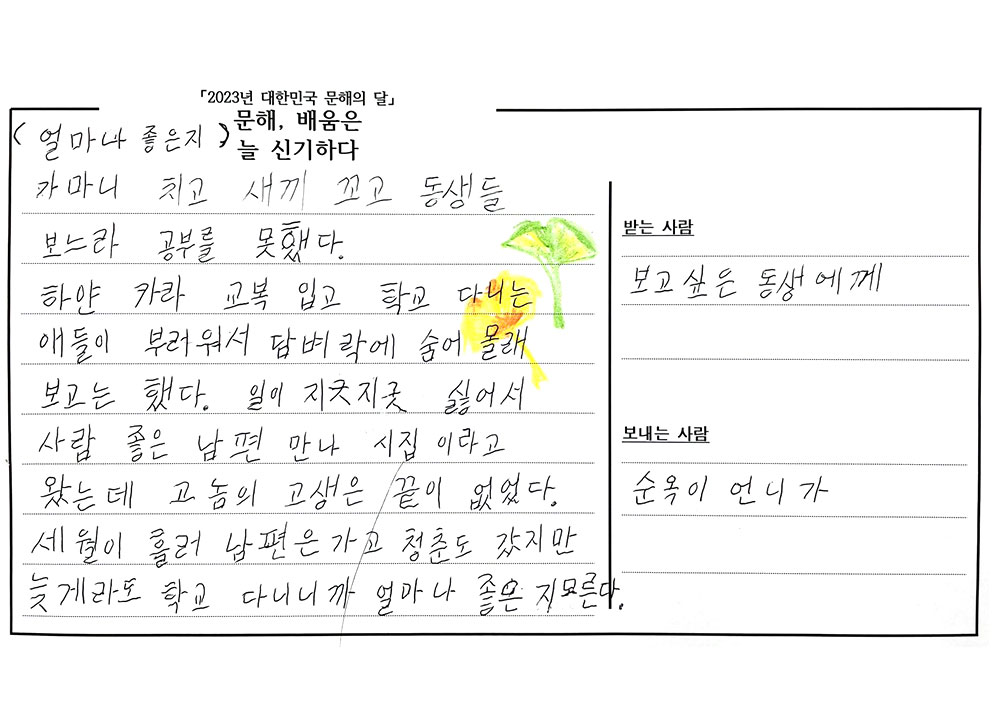 「2023년 대한민국 문해의 달」
문해, 배움은
늘 신기하다
(얼마나 좋은지)
카마니 치고 새끼 꼬고 동생들
보느라 공부를 못했다.
하얀 카라 교복 입고 학교 다니는
애들이 부러워서 담벼락에 숨어 몰래
보고는 했다. 일이 지긋지긋 싫어서
사람 좋은 남편 만나 시집이라고
왔는데 고놈의 고생은 끝이 없었다.
세월이 흘러 남편은 가고 청춘도 갔지만
늦게라도 학교 다니니까 얼마나 좋은지 모른다.
받는 사람
보고싶은 동생에게
보내는 사람
순옥이 언니가